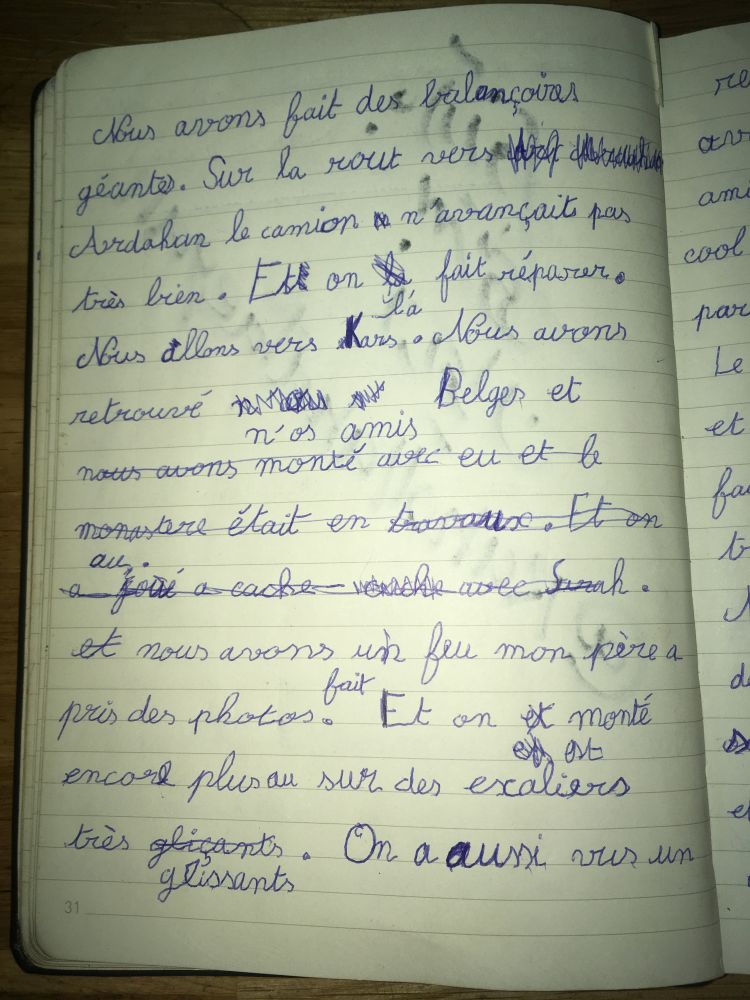 Nous avons fait des balançoires
géantes. Sur la rout vers
Ardahan le camion n'avançait pas
très bien. Et on fait réparer.
là
Nous allons vers Kars. Nous avons
retrouvé Belges et
n'os amis
nous avons monté avec eu et le
monastere était en travaux. Et on
au.
a joué a cache avec Sarah.
et nous avons un feu mon père a
fait
pris des photos. Et on monté
est
encore plus au sur des excaliers
très gliçants. On a aussi vus un
glissants
31
re
ami
cool
par
Le
et